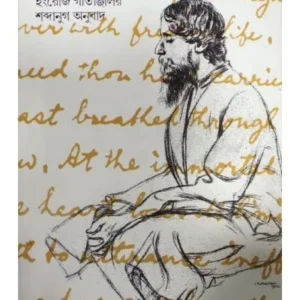 ইংরাজি গীতাঞ্জলির
শব্দানুগ অনুবাদ
ver with fresh life.
eed thou carrie
ast breathed through
w. At the immortal
heart
th to utterance ineff